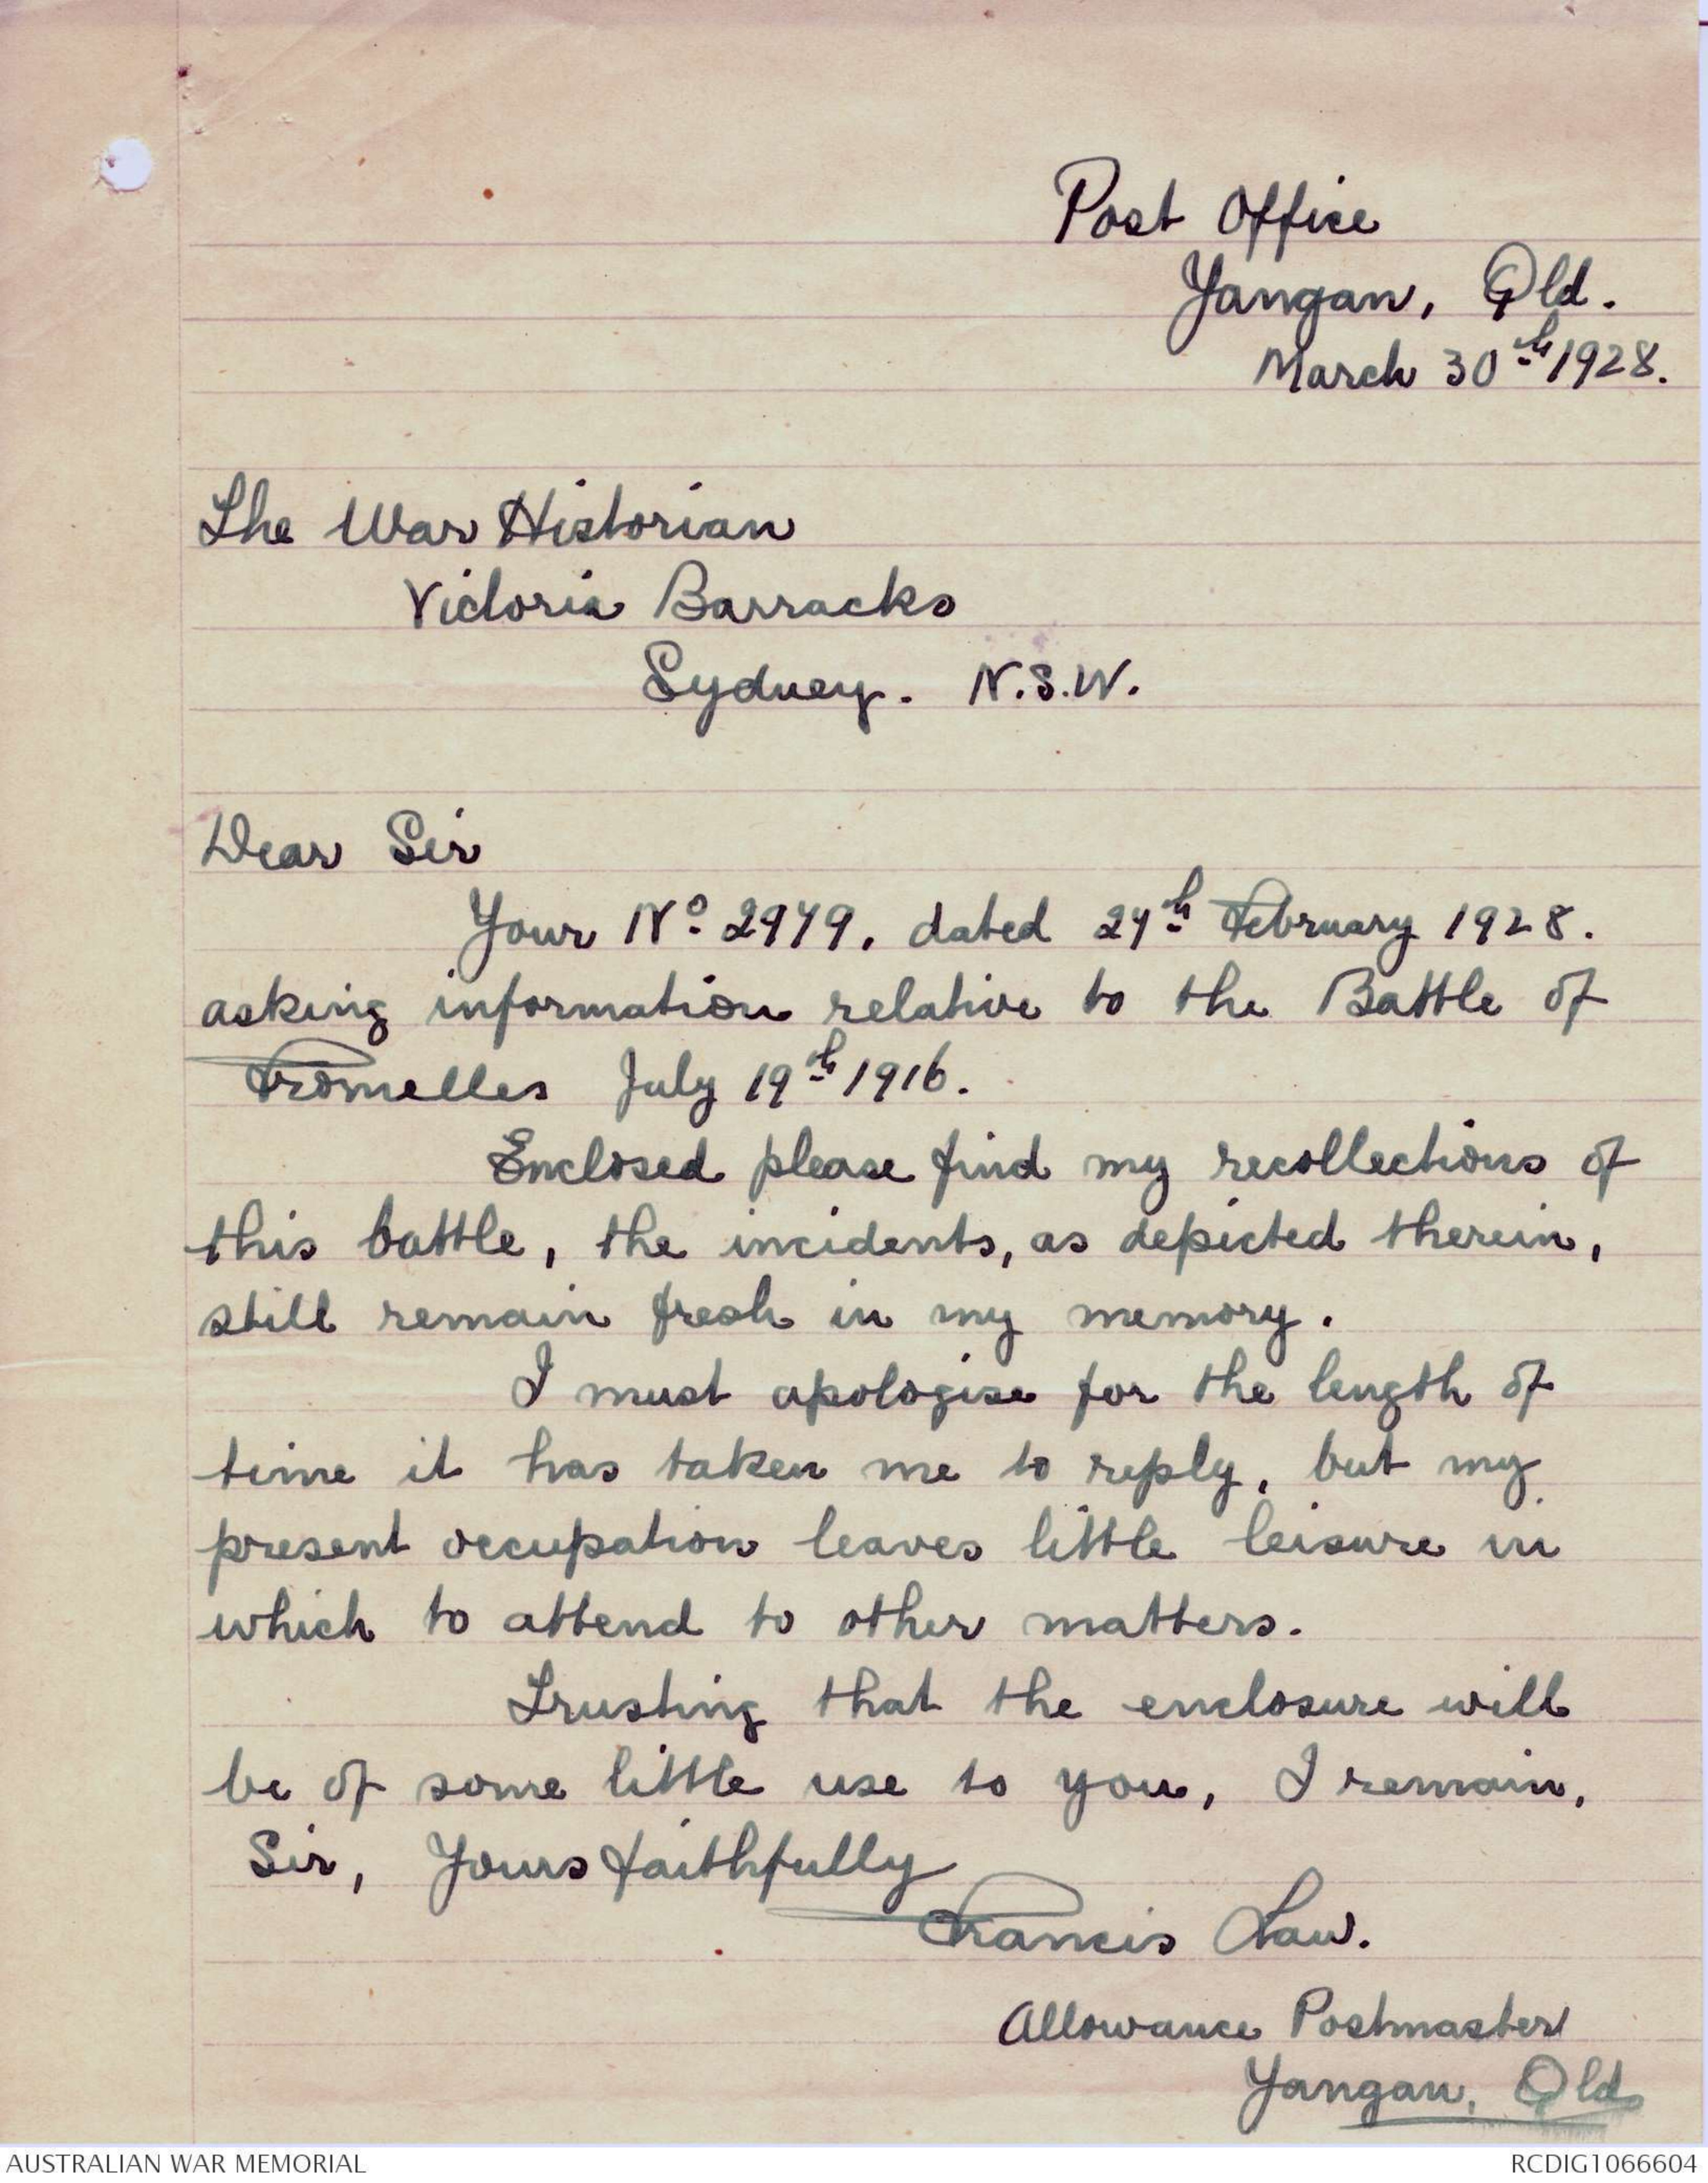 Post Office
Yangan, Qld.
March 30th 1928.
The War Historian
Victoria Barracks
Sydney. N.S.W.
Dear Sir
Your No 2979, dated 27th February 1928.
asking information relative to the Battle of
Fromelles July 19th 1916.
Enclosed please find my recollections of
this battle, the incidents, as depicted therein,
still remain fresh in my memory.
I must apologise for the length of
time it has taken me to reply, but my
present occupation leaves little leisure in
which to attend to other matters.
Trusting that the enclosure will
be of some little use to you, I remain,
Sir, Yours faithfully
Francis Law.
Allowance Postmaster
Yangan, Qld
AUSTRALIAN WAR MEMORIAL
RCDIG1066604